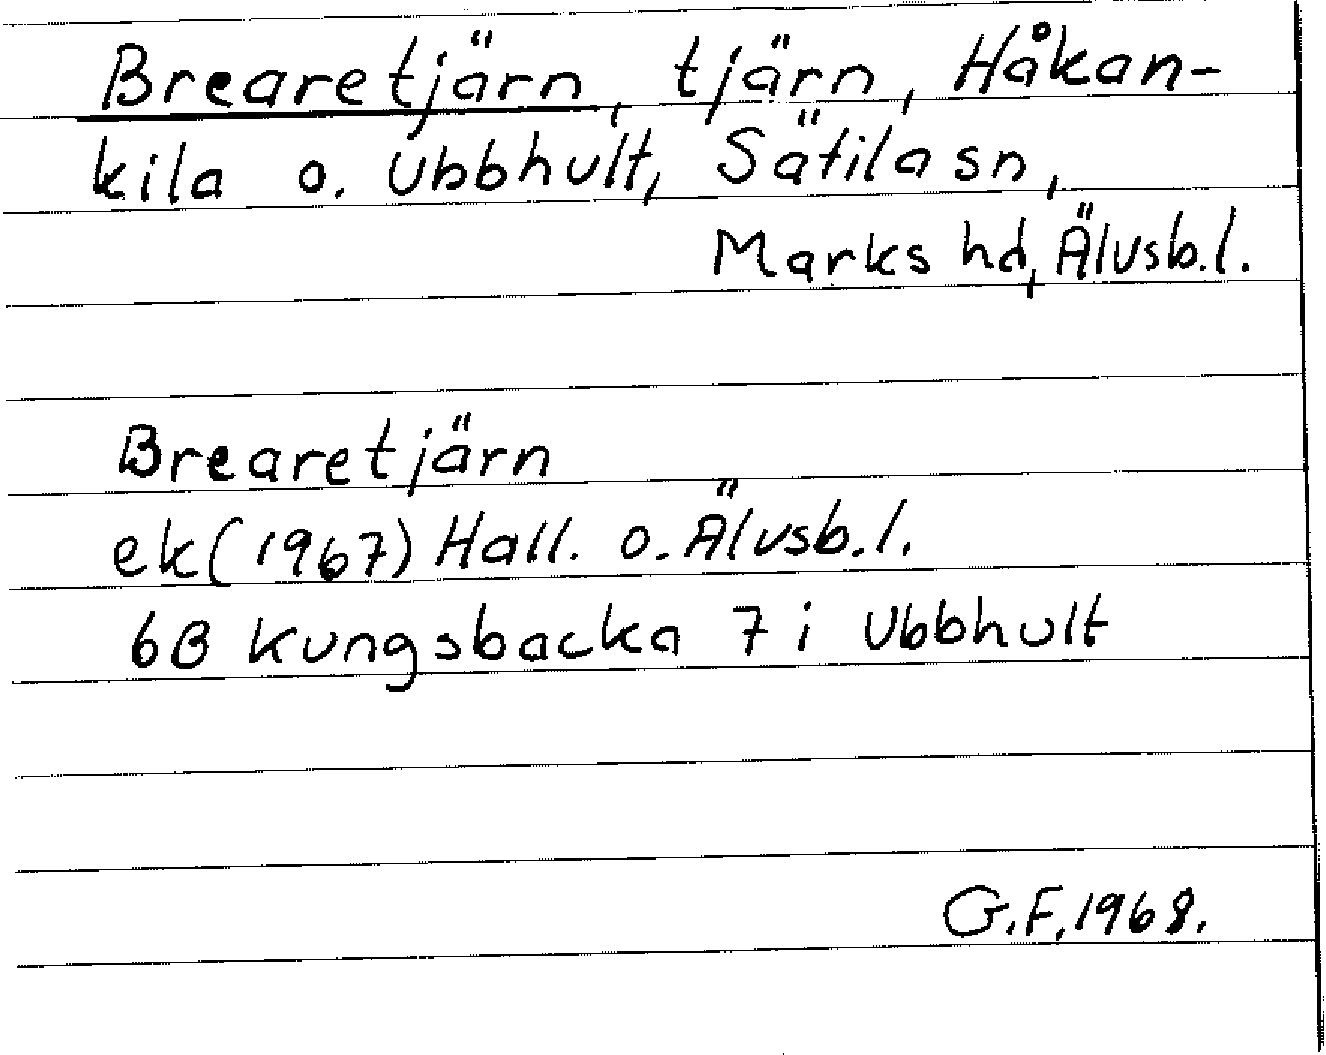 Brearetjärn, tjärn, Håkan-
kila o. Ubbhult, Sätila sn,
Marks hd, Älvsb.l.
Brearetjärn
ek(1967) Hall. o. Älvsb.l.
6B Kungsbacka 7 i Ubbhult
G.F. 1968.